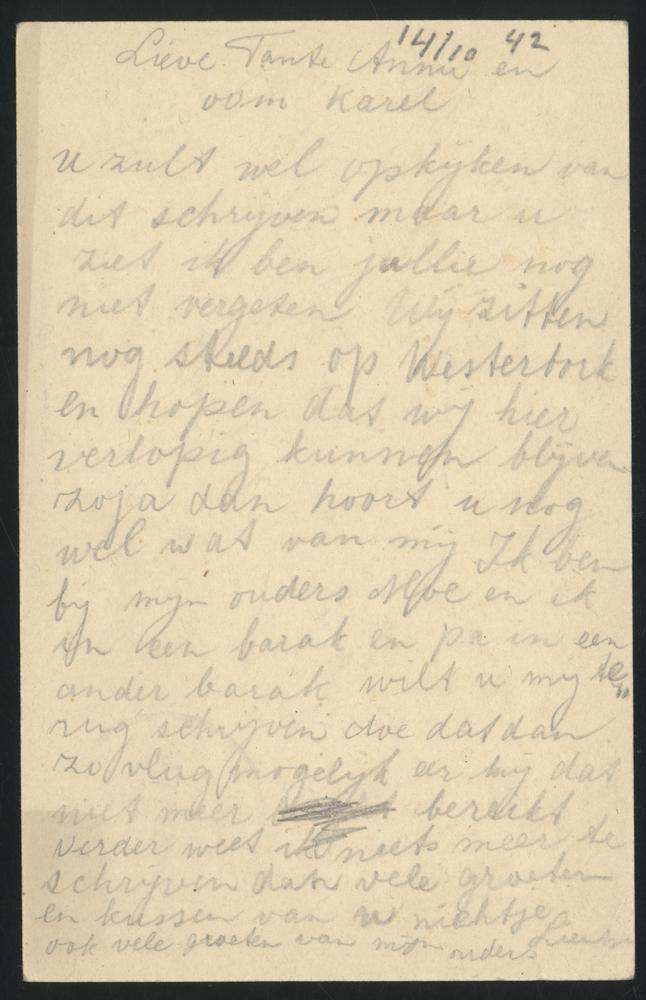 14/10 42
Lieve Tante Annie en
oom Karel
u zult wel opkijken van
dit schrijven maar u
ziet ik ben jullie nog
niet vergeten Wij zitten
nog steeds op Westerbork
en hopen dat wij hier
verlopig kunnen blijven
zoja dan hoort u nog
wel wat van mij Ik ben
bij mijn ouders Moe en ik
in een barak en pa in een
ander barak wilt u mij te„
rug schrijven doe dat dan
zo vlug mogelijk eer hij dat
niet meer bereikt
verder weet ik niets meer te
schrijven dan vele groeten
en kussen van u nichtje
ook vele groeten van mijn ouders